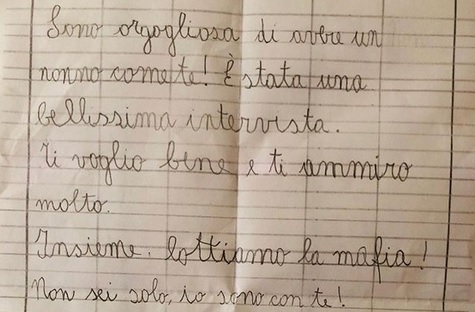 Sono orgogliosa di avere un
nonno come te! È stata una
bellissima intervista.
Ti voglio bene e ti ammiro
molto.
Insieme. lottiamo la mafia!
Non sei solo, io sono con te!